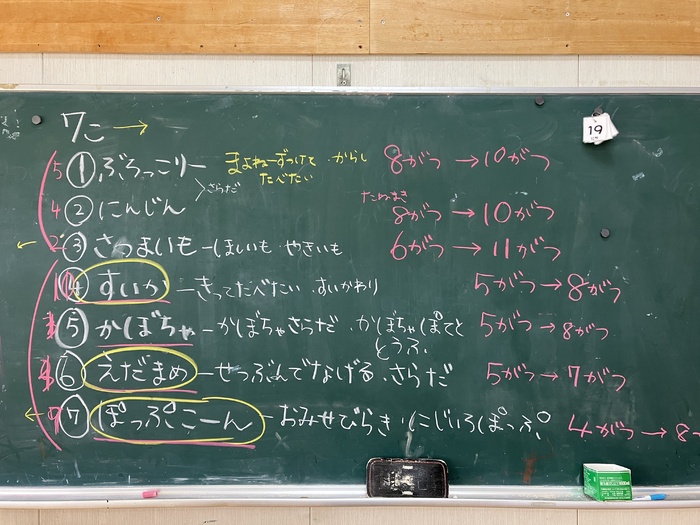 7こ →
5 ① ぶろっこりー まよねーずつけて たべたい ・からし 8がつ → 10がつ
>さらだ
4 ② にんじん たねまき 8がつ → 10がつ
③ さつまいも ーほしいも やきいも 6がつ → 11がつ
④ すいか ーきってたべたい ・すいかわり 5がつ → 8がつ
⑤ かぼちゃ ーかぼちゃさらだ ・かぼちゃぽてと 5がつ → 8がつ
とうふ
⑥ えだまめ ーせつぶんでなげる ・さらだ 5がつ → 7がつ
⑦ ぽっぷこーん ーおみせびらき ・にじいろぽっぷ 4がつ → 8
19